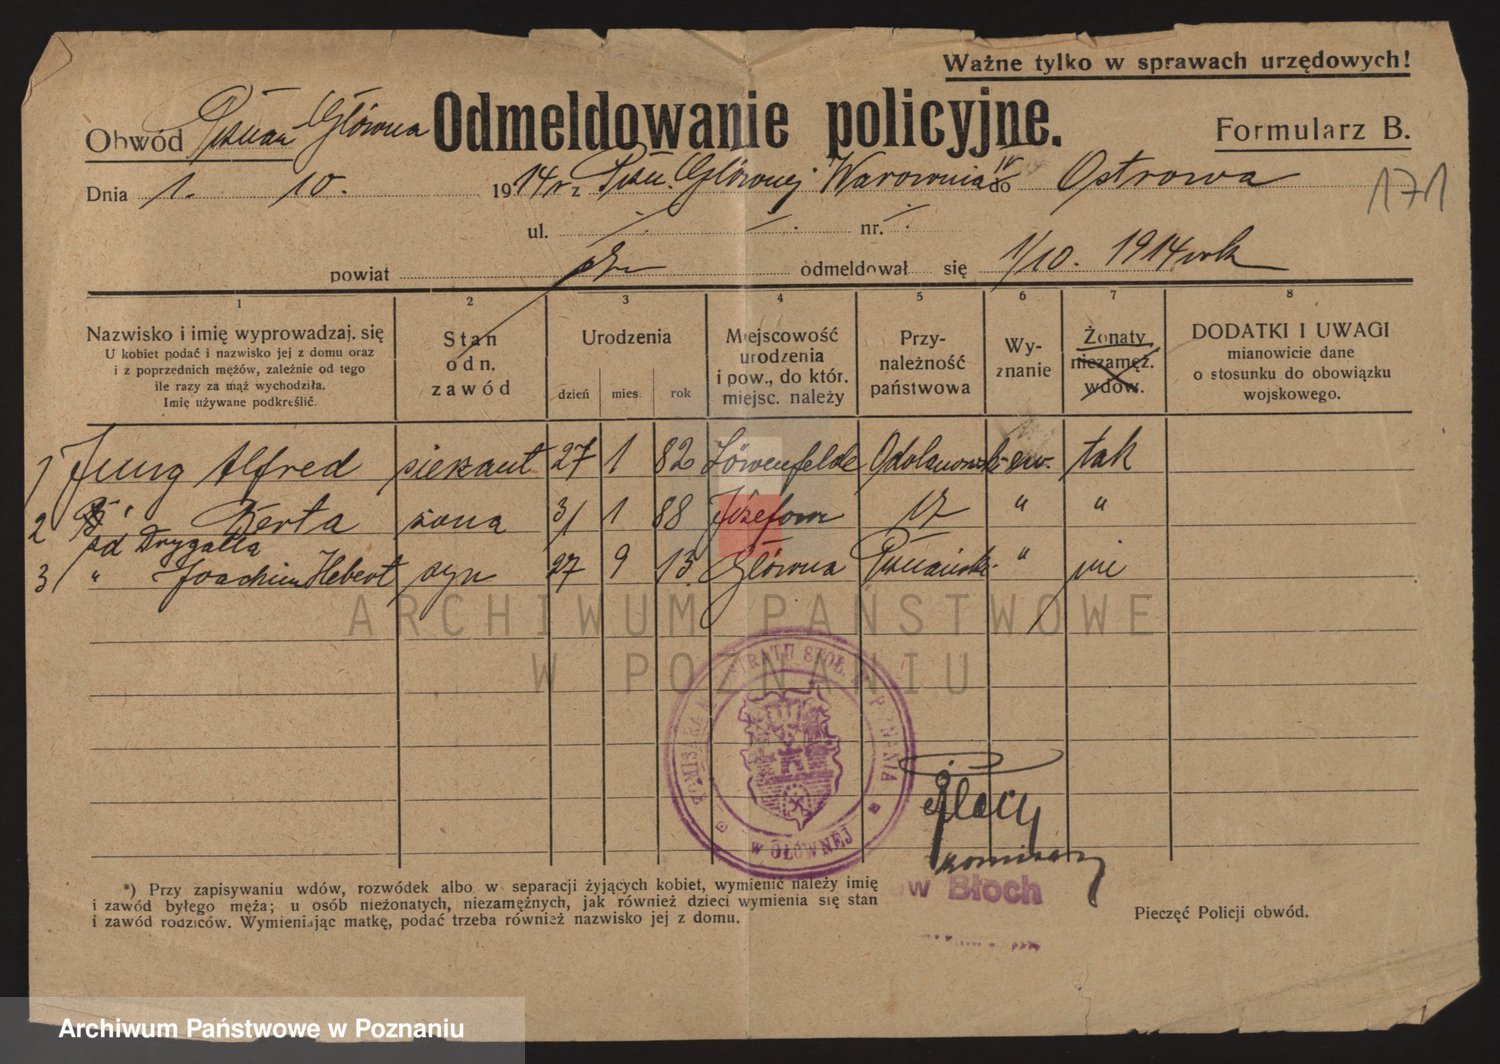 Ważne tylko w sprawach urzędowych!
Obwód Poznań Główna Odmeldowanie policyjne. Formularz B.
Dnia 1. 10. 1914 r z Pozn. Głównej Warownia do Ostrowa
171
ul. nr.
powiat odmeldował się 1/10. 1914
1 2 3 4 5 6 7 8
Nazwisko i imię wyprowadzaj. się
U kobiet podać i nazwisko jej z domu oraz
i z poprzednich mężów, zależnie od tego
ile razy za mąż wychodziła.
Imię używane podkreślić.
Stan
odn.
zawód
Urodzenia
dzień mies. rok
Miejscowość
urodzenia
i pow., do któr.
miejsc. należy
Przy-
należność
państwowa
Wy-
znanie
Żonaty
niezamęż.
wdow.
DODATKI I UWAGI
mianowicie dane
o stosunku do obowiązku
wojskowego.
1 Jung Alfred 27 1 82 Löwenfelde ew. tak
2 Berta żona 31 1 88 Józefow " "
zd Drygalla
3 " Joachim Hebert syn 27 9 13. Główna " nie
ARCHIWUM PAŃSTWOWE
W POZNANIU
KOMISARZ MAGISTRATU STOŁ. M. POZNANIA
W GŁÓWNEJ
komisarz
w Błoch
*) Przy zapisywaniu wdów, rozwódek albo w separacji żyjących kobiet, wymienić należy imię
i zawód byłego męża; u osób nieżonatych, niezamężnych, jak również dzieci wymienia się stan
i zawód rodziców. Wymieniając matkę, podać trzeba również nazwisko jej z domu.
Pieczęć Policji obwód.
Archiwum Państwowe w Poznaniu